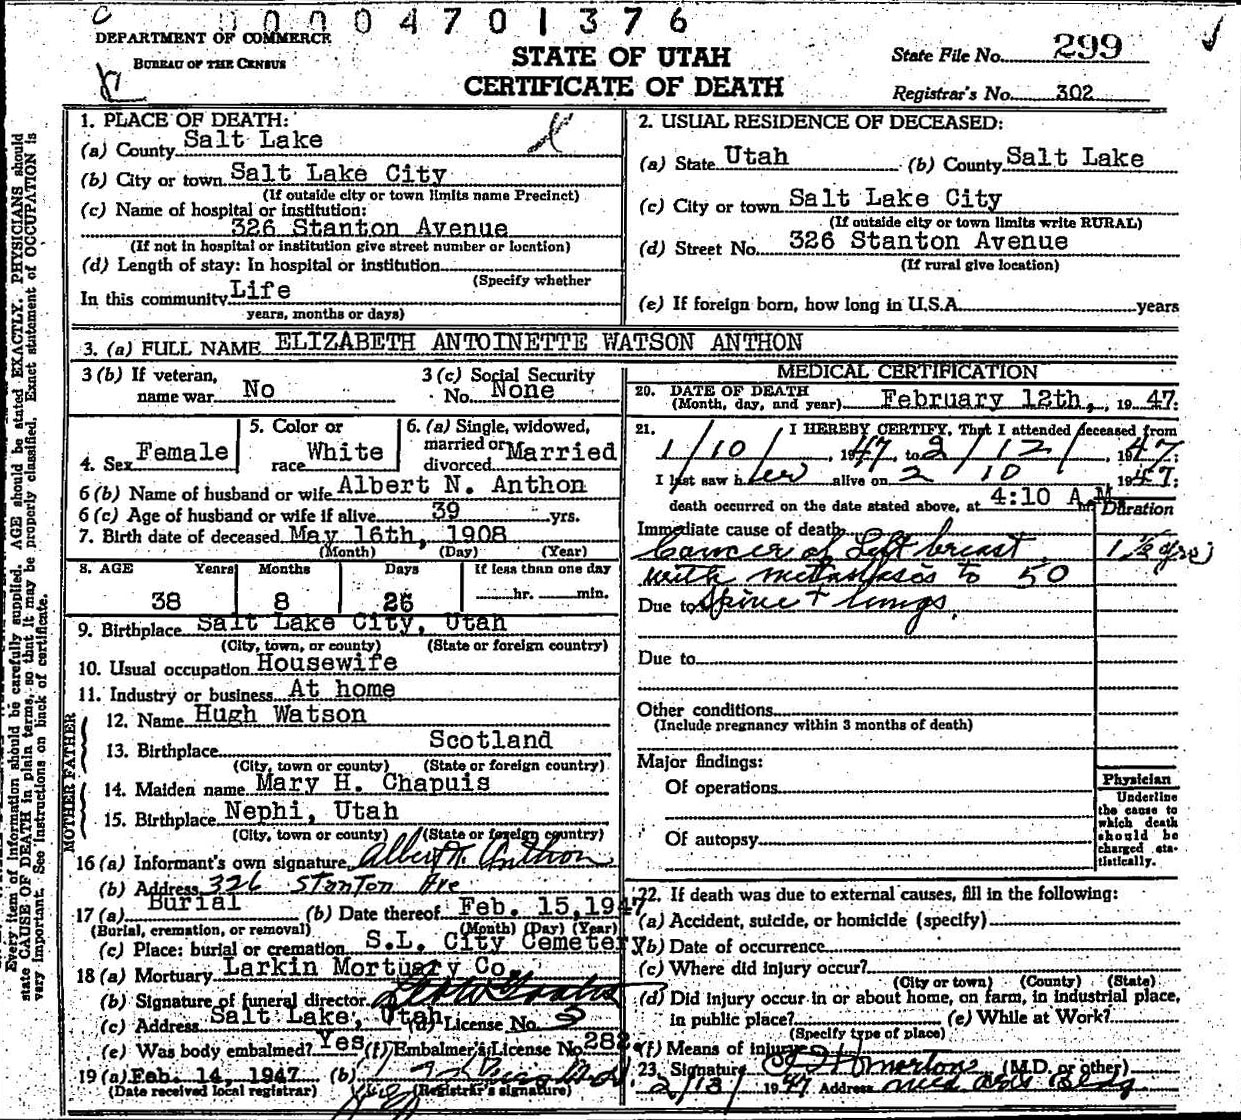 00004701376
DEPARTMENT OF COMMERCE
BUREAU OF THE CENSUS
STATE OF UTAH
CERTIFICATE OF DEATH
State File No. 299
Registrar's No. 302
1. PLACE OF DEATH:
(a) County Salt Lake
(b) City or town Salt Lake City
(If outside city or town limits name Precinct)
(c) Name of hospital or institution:
326 Stanton Avenue
(If not in hospital or institution give street number or location)
(d) Length of stay: In hospital or institution
(Specify whether
In this community Life
years, months or days)
2. USUAL RESIDENCE OF DECEASED:
(a) State Utah (b) County Salt Lake
(c) City or town Salt Lake City
(If outside city or town limits write RURAL)
(d) Street No. 326 Stanton Avenue
(If rural give location)
(e) If foreign born, how long in U.S.A. years
3. (a) FULL NAME ELIZABETH ANTOINETTE WATSON ANTHON
3 (b) If veteran, name war No
3 (c) Social Security No. None
4. Sex Female
5. Color or race White
6. (a) Single, widowed, married or divorced Married
6 (b) Name of husband or wife Albert N. Anthon
6 (c) Age of husband or wife if alive 39 yrs.
7. Birth date of deceased May 16th, 1908
(Month) (Day) (Year)
8. AGE Years Months Days If less than one day
38 8 26 hr. min.
9. Birthplace Salt Lake City, Utah
(City, town, or county) (State or foreign country)
10. Usual occupation Housewife
11. Industry or business At home
FATHER
12. Name Hugh Watson
13. Birthplace Scotland
(City, town or county) (State or foreign country)
MOTHER
14. Maiden name Mary H. Chapuis
15. Birthplace Nephi, Utah
(City, town or county) (State or foreign country)
16 (a) Informant's own signature Albert N. Anthon
(b) Address 326 Stanton Ave
17 (a) Burial (b) Date thereof Feb. 15, 1947
(Burial, cremation, or removal) (Month) (Day) (Year)
(c) Place: burial or cremation S.L. City Cemetery
18 (a) Mortuary Larkin Mortuary Co.
(b) Signature of funeral director
(c) Address Salt Lake, Utah (d) License No. 9
(e) Was body embalmed? Yes (f) Embalmer's License No. 282
19 (a) Feb. 14, 1947 (b)
(Date received local registrar) (Registrar's signature)
MEDICAL CERTIFICATION
20. DATE OF DEATH
(Month, day, and year) February 12th, 1947:
21. I HEREBY CERTIFY, That I attended deceased from
1/10/, 1947, to 2/12/, 1947;
I last saw her alive on 2 10 1947;
death occurred on the date stated above, at 4:10 A.M.
Duration
Immediate cause of death
Cancer of Left breast 1 1/2 yrs
with metastases to 50
Due to spine + lungs.
Due to
Other conditions
(Include pregnancy within 3 months of death)
Major findings:
Of operations
Of autopsy
Physician
Underline
the cause to
which death
should be
charged sta-
tistically.
22. If death was due to external causes, fill in the following:
(a) Accident, suicide, or homicide (specify)
(b) Date of occurrence
(c) Where did injury occur?
(City or town) (County) (State)
(d) Did injury occur in or about home, on farm, in industrial place,
in public place? (e) While at Work?
(Specify type of place)
(f) Means of injury
23. Signature (M.D. or other)
2/13/ 1947 Address Med Arts Bldg
Every item of information should be carefully supplied. AGE should be stated EXACTLY. PHYSICIANS should
state CAUSE OF DEATH in plain terms, so that it may be properly classified. Exact statement of OCCUPATION is
very important. See instructions on back of certificate.